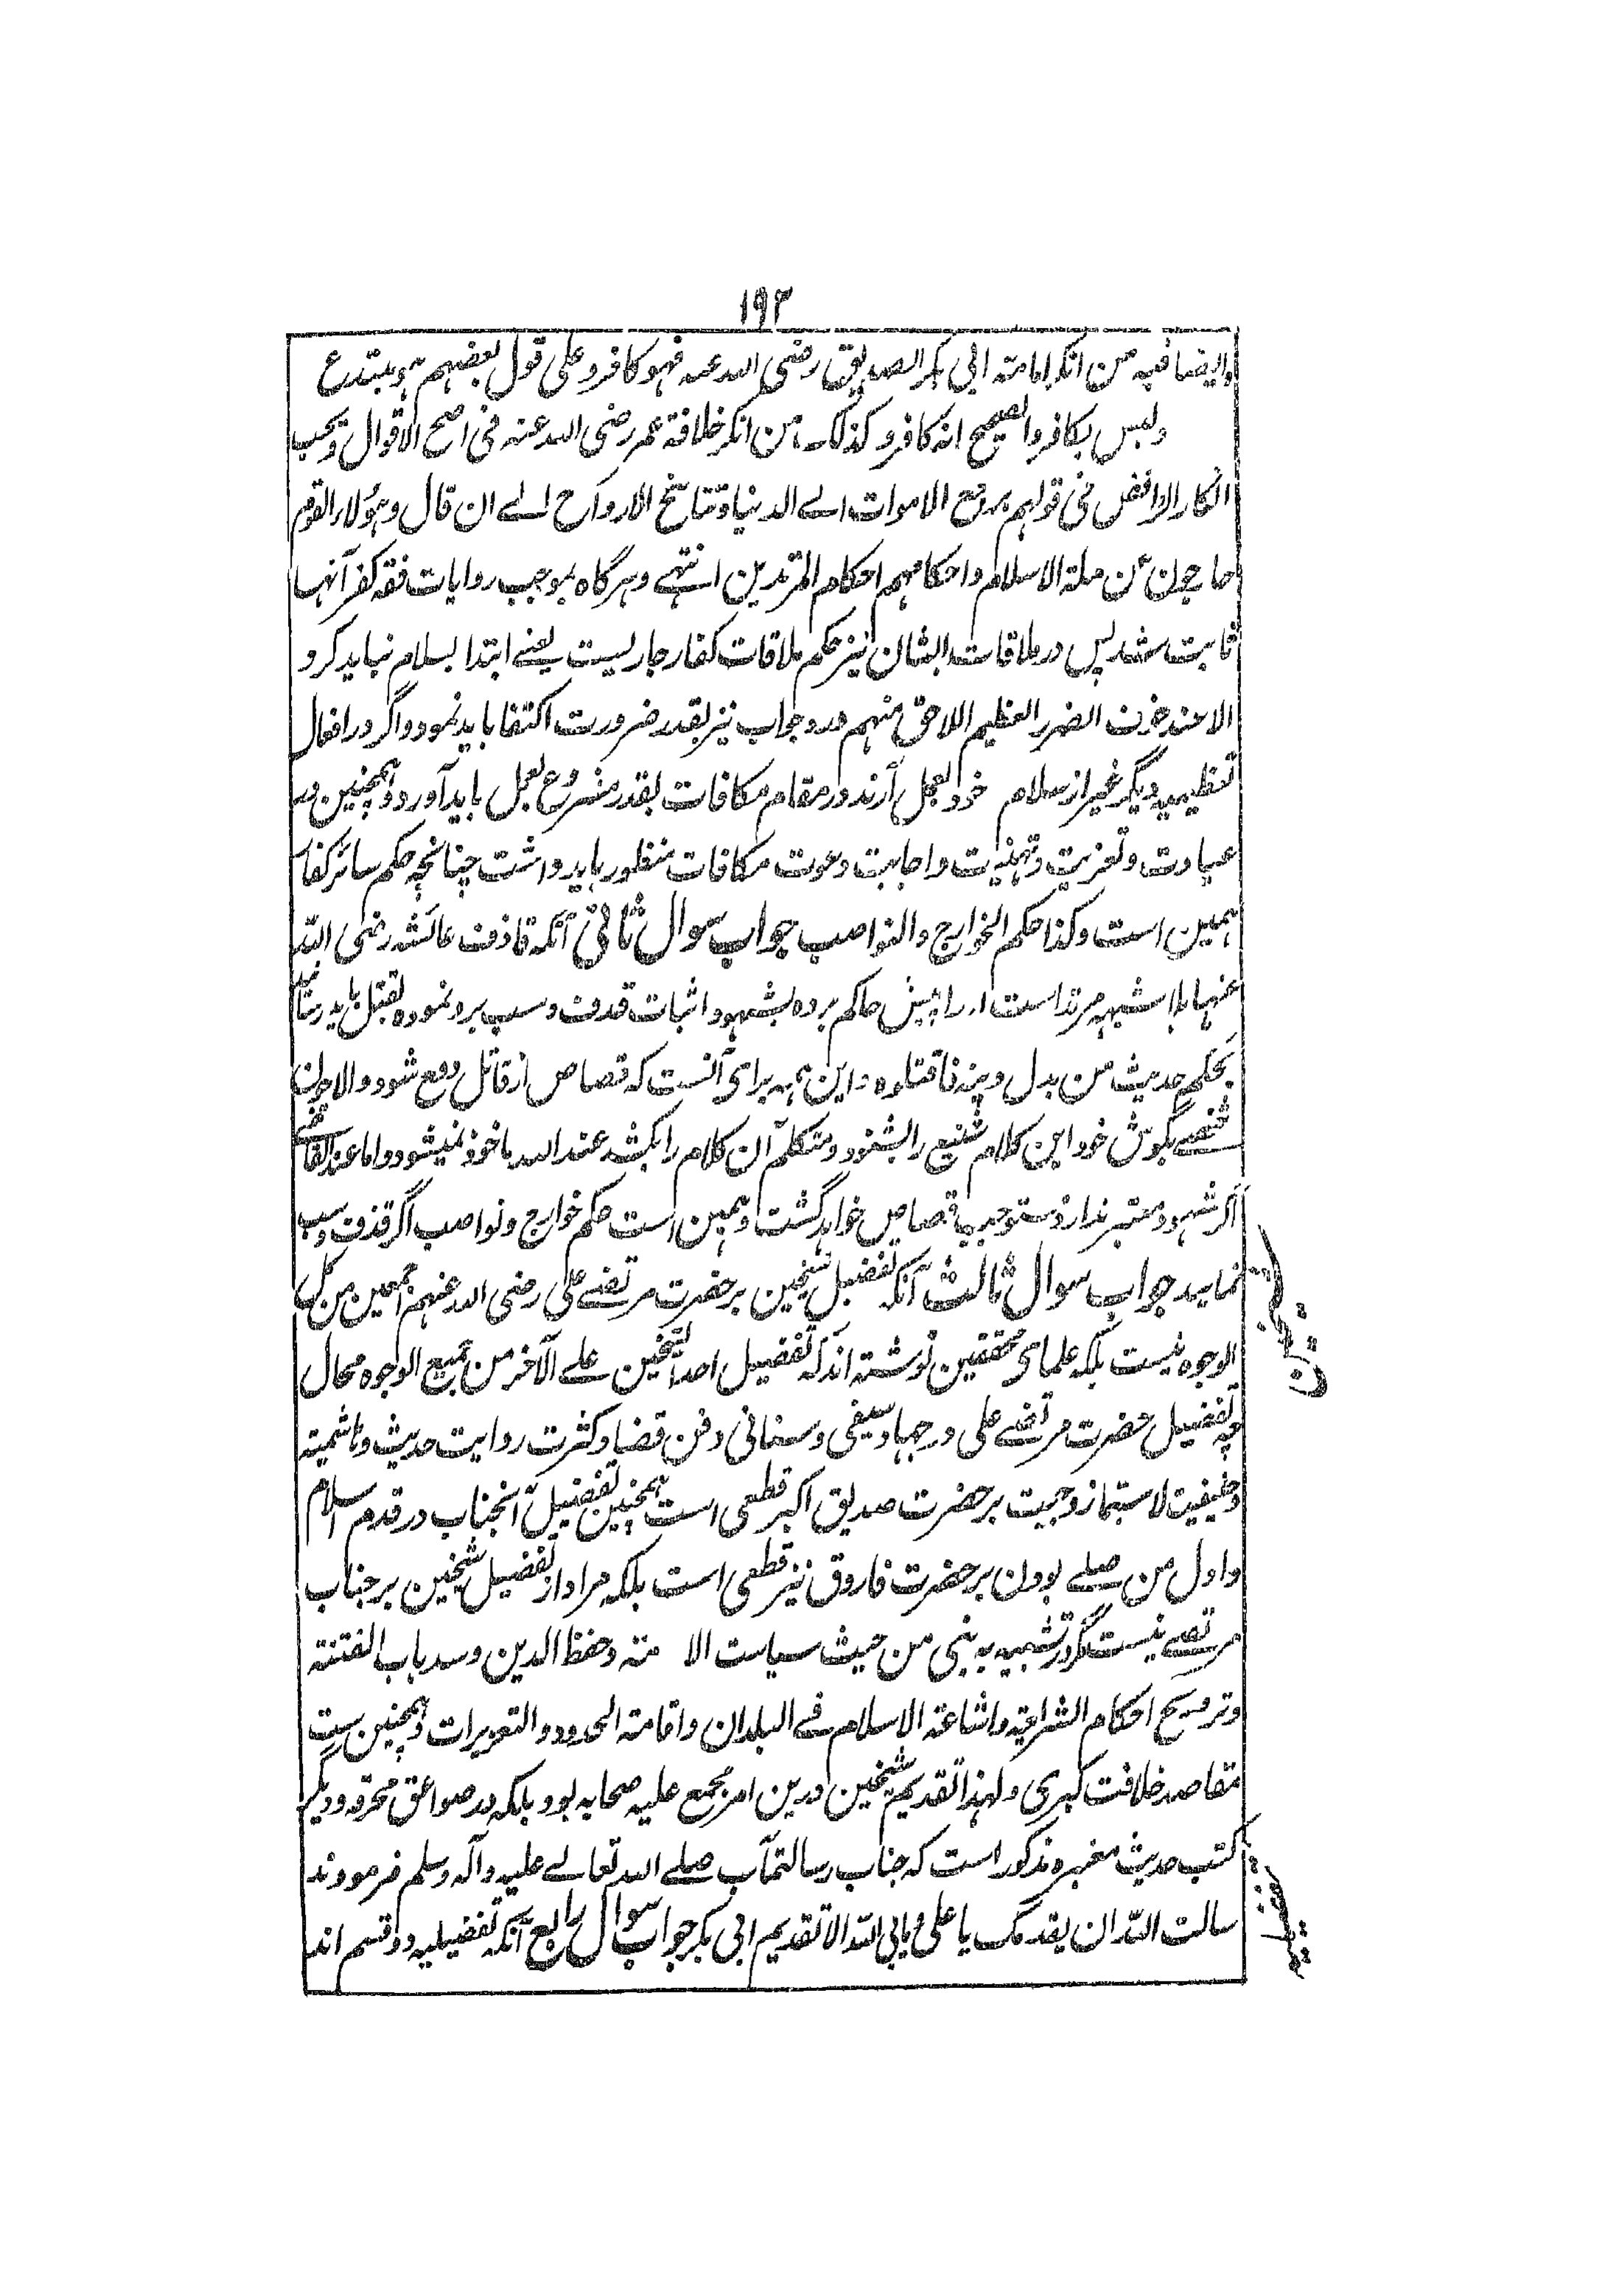 ۱۹۳
وایضا فیه من انکر امامته ابی بکر الصدیق رضی الله عنه فهو کافر و علی قول بعضهم هو مبتدع
ولیس بکافر والصحیح انه کافر و کذلک من انکر خلافة عمر رضی الله عنه فی اصح الاقوال و یجب
اکفار الروافض فی قولهم برجع الاموات الے الدنیا و تناسخ الارواح الے ان قال و هؤلاء القوم
خارجون عن ملة الاسلام و احکامهم احکام المرتدین انتهے و هرگاه بموجب روایات فقه کفر آنها
ثابت شد پس در ملاقات ایشان نیز حکم ملاقات کفار جاریست یعنے ابتدا بسلام نباید کرد
الا عند خوف الضرر العظیم اللاحق منهم و در جواب نیز بقدر ضرورت اکتفا باید نمود و اگر در افعال
تعظیمیه دیگر غیر از سلام خود بعمل آرند در مقام مکافات بقدر مشروع بعمل باید آورد و همچنین در
عیادت و تعزیت و تهنیت و اجابت دعوت مکافات منظور باید داشت چنانچه حکم سائر کفار
همین است و کذا حکم الخوارج والنواصب جواب سوال ثانی آنکه قاذف عائشه رضی الله
عنها بلا شبهه مرتد است او را پیش حاکم برده بشهود اثبات قذف و سب برو نموده بقتل باید رسانید
بحکم حدیث من بدل دینه فاقتلوه و این همه برای آنست که قصاص از قاتل دفع شود و الا چون
شخصے بگوش خود این کلام شنیع را بشنود و متکلم آن کلام را بکشد عند الله ماخوذ نمیشود و اما عند القاضے
اگر شهود معتبر ندارد مستوجب قصاص خواهد گشت و همین است حکم خوارج و نواصب اگر قذف و سب
نمایند جواب سوال ثالث آنکه تفضیل شیخین بر حضرت مرتضے علی رضی الله عنهم اجمعین من کل
الوجوه نیست بلکه علمای محققین نوشته اند که تفضیل احد الشیخین علے الآخر من جمیع الوجوه محال
چه تفضیل حضرت مرتضے علی در جهاد سیفی و سنانی و فن قضا و کثرت روایت حدیث و هاشمیته
و حنیفیت لا سیما زوجیت بر حضرت صدیق اکبر قطعی است همچنین تفضیل آنجناب در قدم اسلام
و اول من صلے بودن بر حضرت فاروق نیز قطعی است بلکه مراد از تفضیل شیخین بر جناب
مرتضے نیست مگر در تشبیه به نبی من حیث سیاست الا مته و حفظ الدین و سد باب الفتنته
و ترویج احکام الشرائعیه و اشاعته الاسلام فے البلدان و اقامته الحدود و التعزیرات و همچنین ست
مقاصد خلافت کبری و لهذا تقدیم شیخین درین امر مجمع علیه صحابه بود بلکه در صواعق محرقه و دیگر
کتب حدیث معتبره مذکور است که جناب رسالتمآب صلے الله تعالے علیه و آله وسلم فرمودند
سالت الله ان یقدمک یا علی و یابی الله الا تقدیم ابی بکر جواب سوال رابع آنکه تفضیلیه دو قسم اند